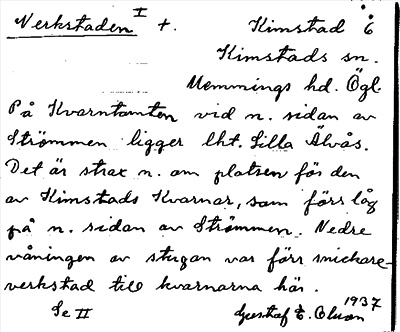 Verkstaden I +. Kimstad Ö
Kimstads sn.
Memmings hd. Ögl.
På Kvarntomten vid n. sidan av
Strömmen ligger lht. Lilla Älvås.
Det är strax n. om platsen för den
av Kimstads Kvarnar, som förr låg
på n. sidan av Strömmen. Nedre
våningen av stugan var förr snickare-
verkstad till kvarnarna här.
Se II Gustaf E. Olson 1937